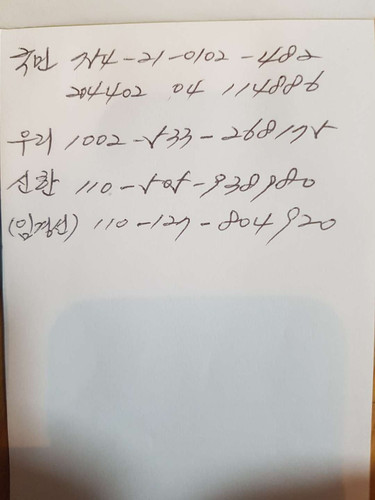 국민 754-21-0102-482
204402 04 114886
우리 1002-533-268175
신한 110-505-938980
(임경선) 110-127-804920